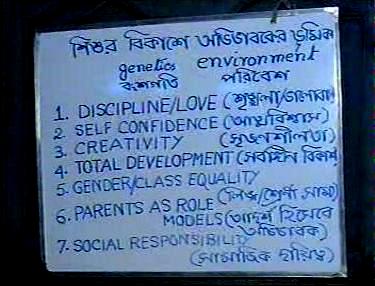 শিশুর বিকাশে অভিভাবকের ভূমিকা
genetics environment
বংশগতি পরিবেশ
1. DISCIPLINE/LOVE (শৃঙ্খলা/ভালবাসা
2. SELF CONFIDENCE (আত্মবিশ্বাস)
3. CREATIVITY (সৃজনশীলতা)
4. TOTAL DEVELOPMENT (সর্বাঙ্গীন বিকাশ
5. GENDER/CLASS EQUALITY
(লিঙ্গ/শ্রেণী সাম্য)
6. PARENTS AS ROLE
MODELS (আদর্শ হিসেবে
অভিভাবক)
7. SOCIAL RESPONSIBILITY
(সামাজিক দায়িত্ব)